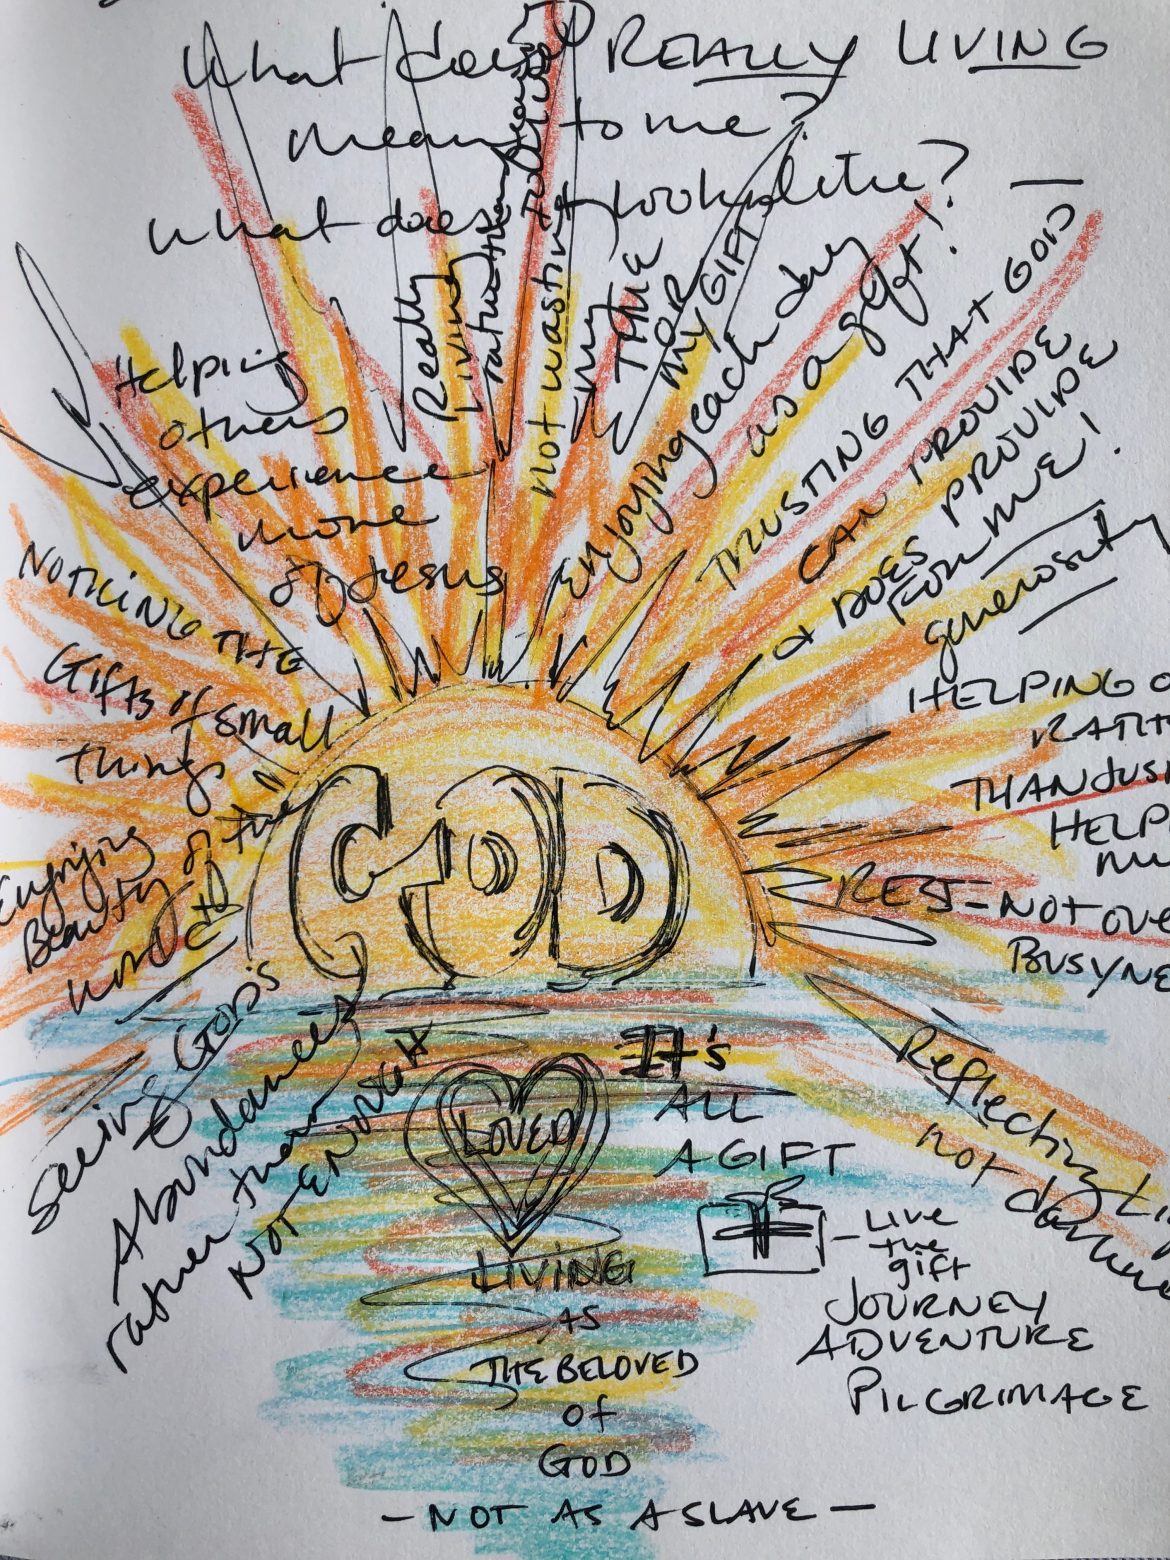 What does REALLY LIVING
mean to me?
What does it look like? —
Helping
others
experience
more
of Jesus
Really
Living
rather than
not wasting
my
TIME
OR
MY GIFT
Enjoying each day
as a gift!
TRUSTING THAT GOD
CAN PROVIDE
& DOES PROVIDE
FOR ME!
generosity
HELPING O
RATH
THAN JUS
HELP
REST = NOT OVE
BUSYNE
Reflecting Li
not darkne
NOTICING THE
Gifts of small
things
Enjoying
Beauty of the
world
Seeing GOD'S
Abundance
rather than
NOT ENOUGH
GOD
LOVED
It's
ALL
A GIFT
- LIVE
the
gift
JOURNEY
ADVENTURE
PILGRIMAGE
LIVING
AS
THE BELOVED
of
GOD
- NOT AS A SLAVE -